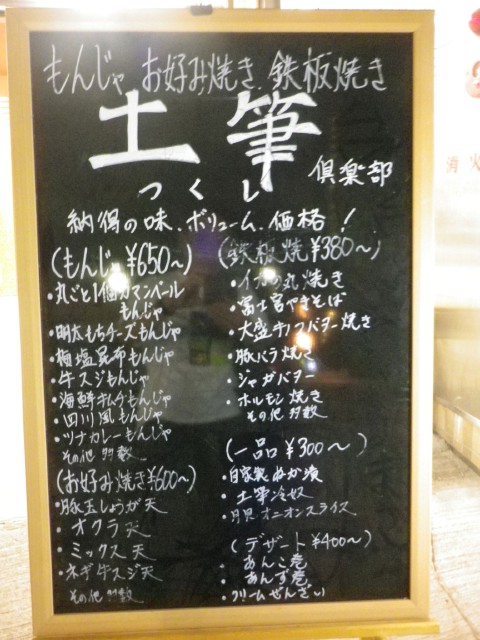 もんじゃ お好み焼き 鉄板焼き
土筆
つくし
倶楽部
納得の味、ボリューム、価格!
(もんじゃ ¥650〜)
・丸ごと1個カマンベール
もんじゃ
・明太もちチーズもんじゃ
・梅塩昆布もんじゃ
・牛スジもんじゃ
・海鮮キムチもんじゃ
・四川風もんじゃ
・ツナカレーもんじゃ
その他 多数
(お好み焼き ¥600〜)
・豚玉しょうが天
・オクラ天
・ミックス天
・ネギ牛スジ天
その他 多数
(鉄板焼 ¥380〜)
・イカの丸焼き
・富士宮やきそば
・大盛キノコバター焼き
・豚バラ焼き
・ジャガバター
・ホルモン焼き
その他 多数
(一品 ¥300〜)
・自家製ぬか漬
・土筆冷奴
・オニオンスライス
(デザート ¥400〜)
・あんこ巻
・あんず巻
・クリームぜんざい
消火